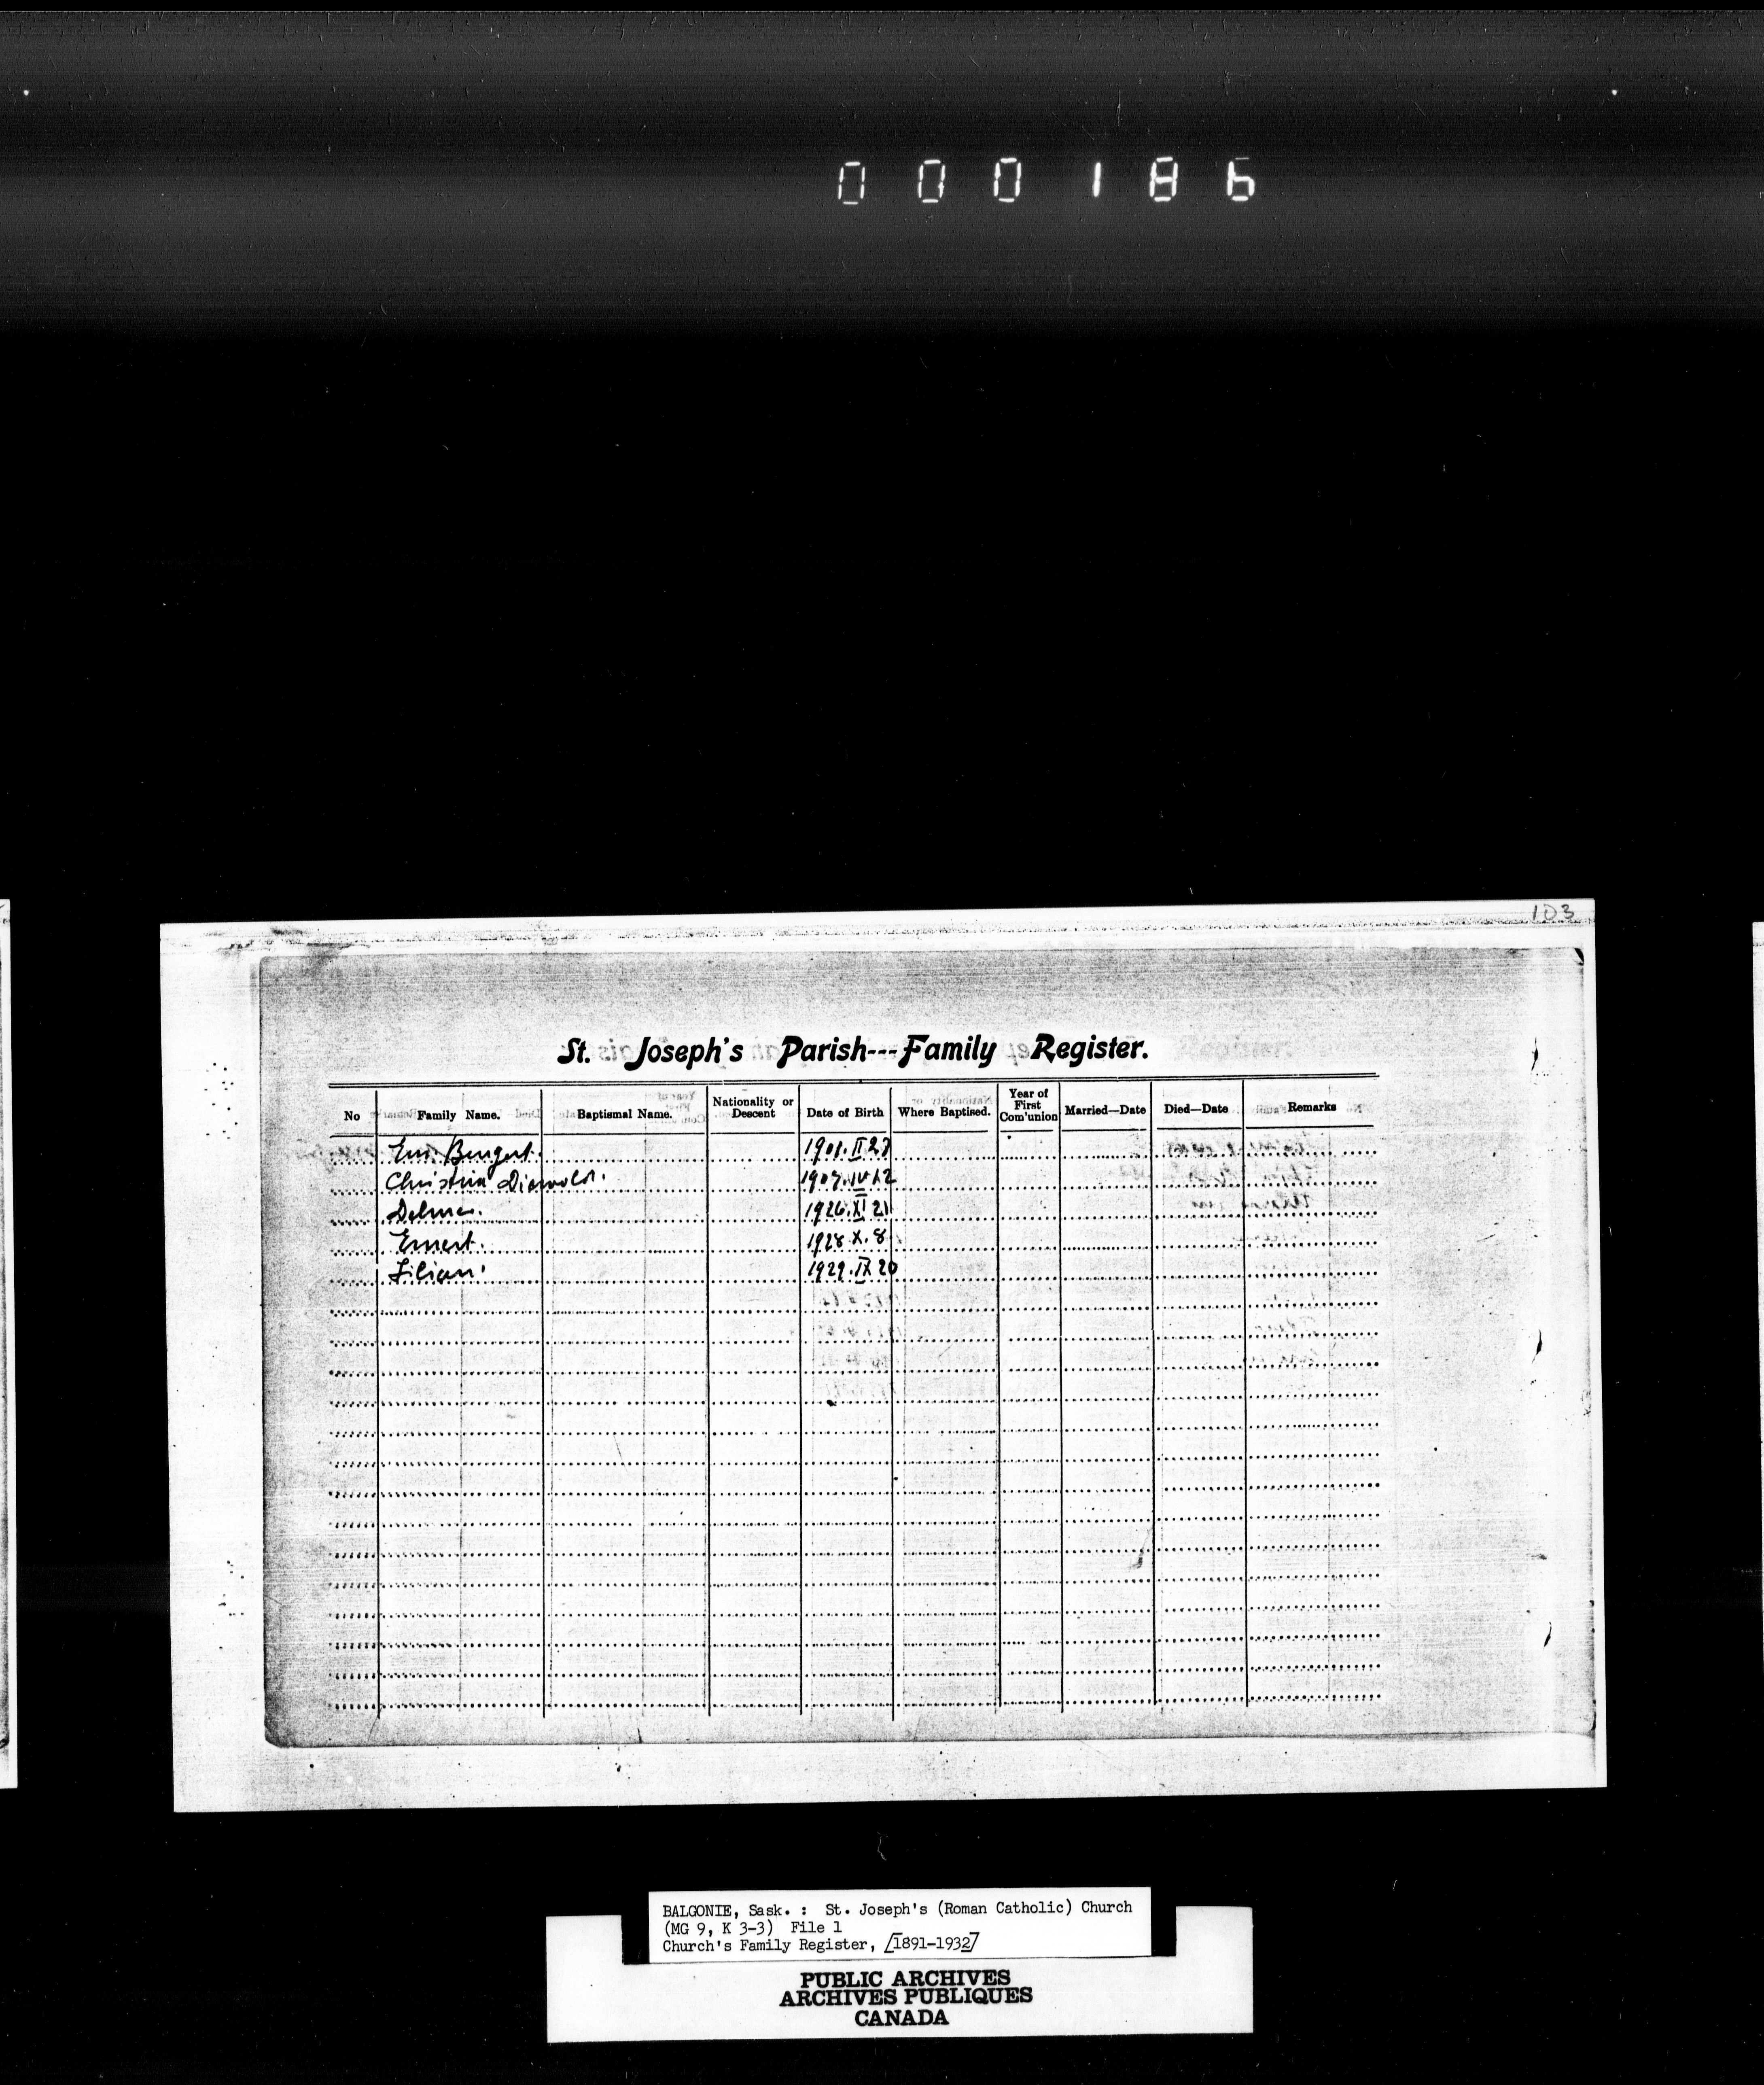 000186
103
St. Joseph's Parish---Family Register.
No Family Name. Baptismal Name. Nationality or Descent Date of Birth Where Baptised. Year of First Com'union Married—Date Died—Date Remarks
Bengert. 1901.II.27
Christina 1907.IV.12
Delma. 1926.XI 21
Ernest. 1928.X.8
Lilian. 1929.IX 20
BALGONIE, Sask. : St. Joseph's (Roman Catholic) Church
(MG 9, K 3-3) File 1
Church's Family Register, [1891-1932]
PUBLIC ARCHIVES
ARCHIVES PUBLIQUES
CANADA